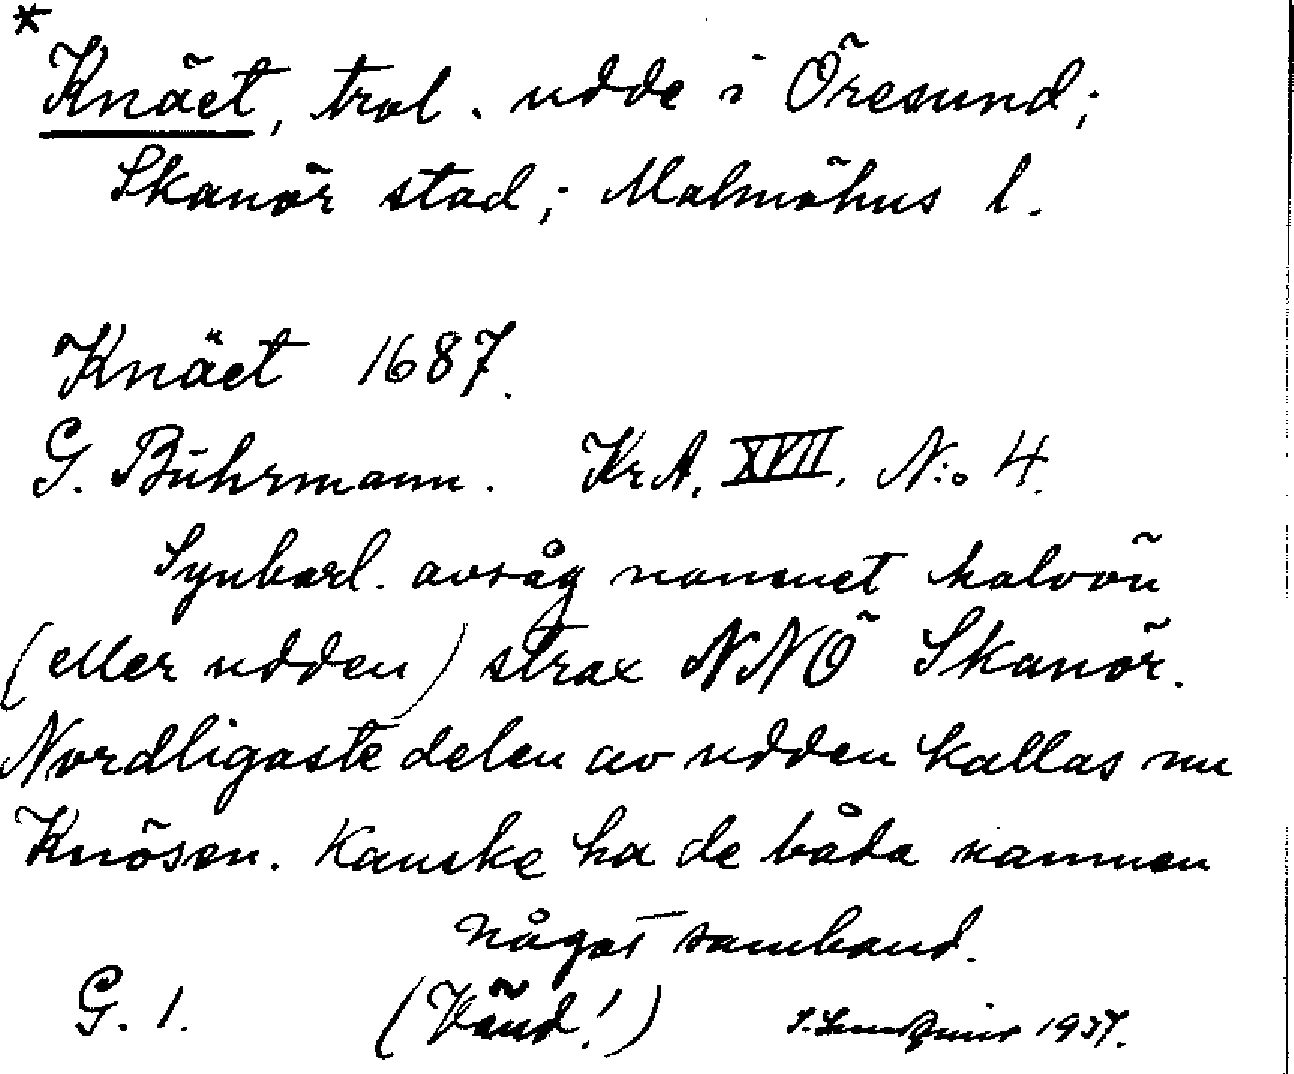 *
Knäet, trol. udde i Öresund;
Skanör stad; Malmöhus l.
Knäet 1687.
G. Buhrmann. Kr.A. XVII. N:o 4.
Synbarl. avsåg namnet halvön
(eller udden) strax NNÖ Skanör.
Nordligaste delen av udden kallas nu
Knösen. Kanske ha de båda namnen
något samband.
G. 1. (Vänd!) 1937.